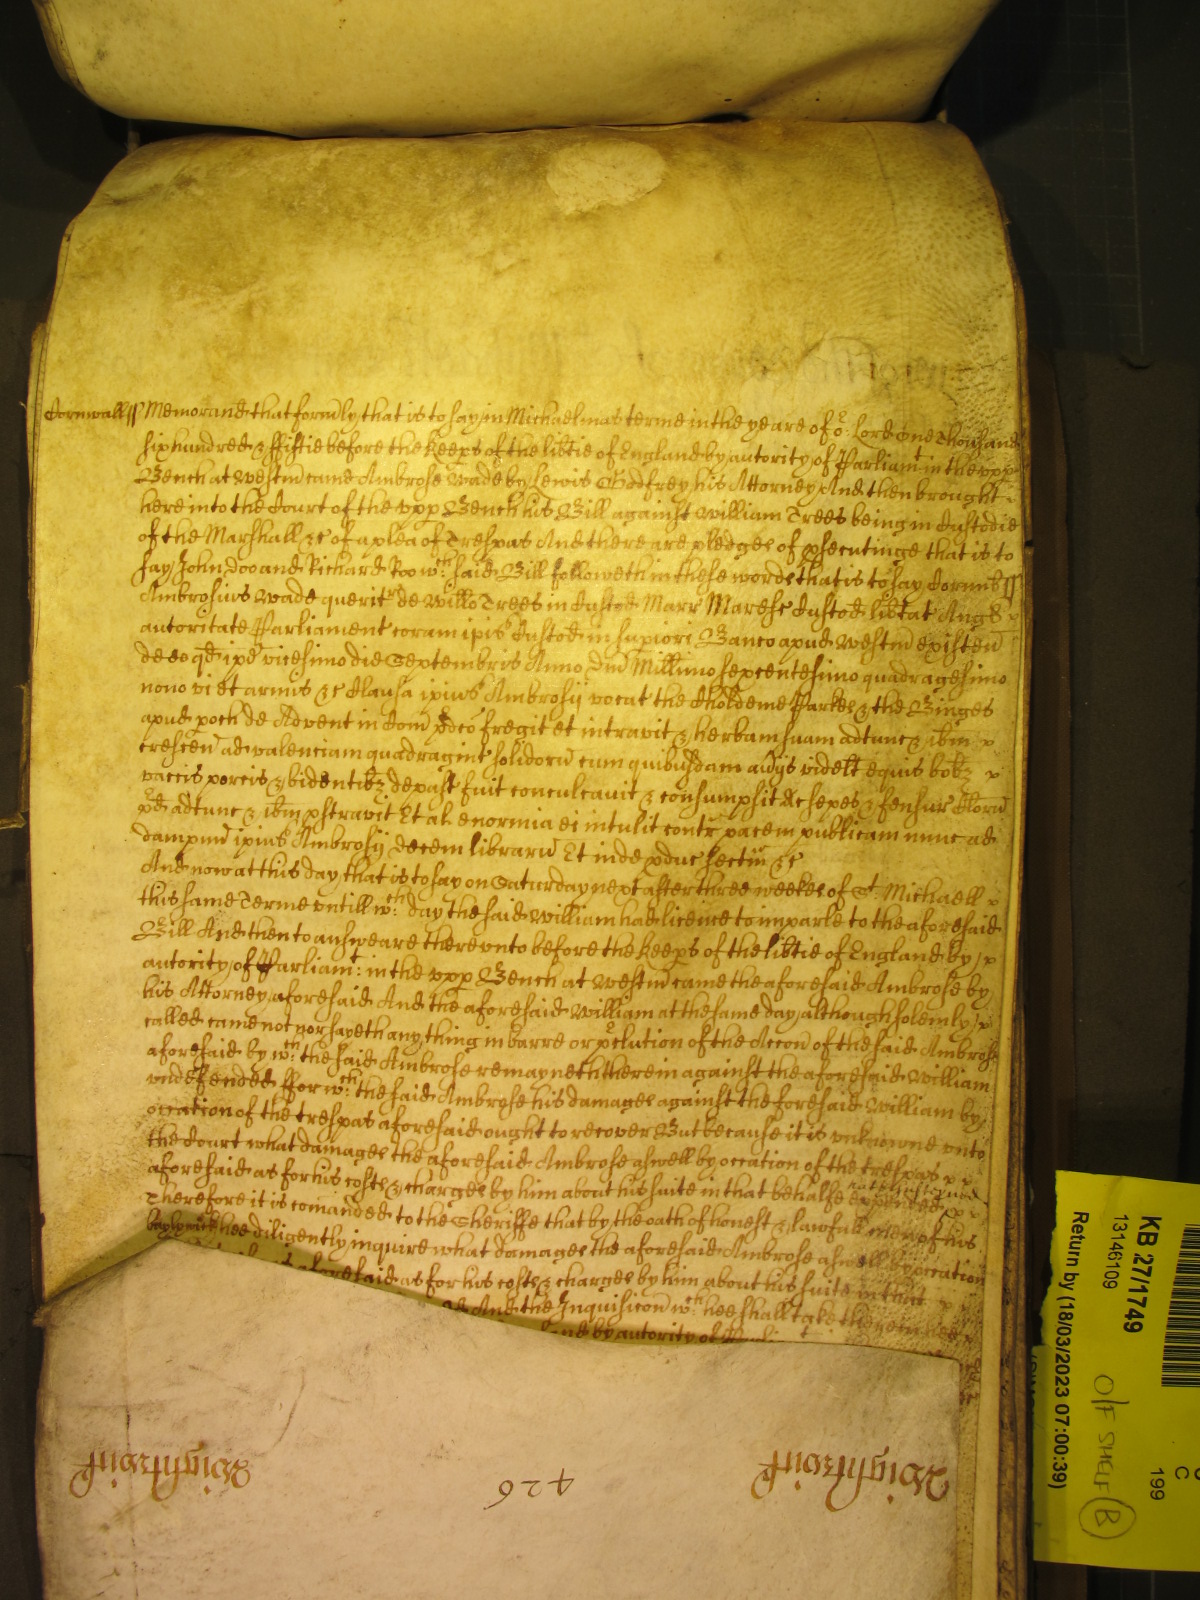 Cornwall ss Memorand that formly that is to say in Michaelmas terme in the yeare of or Lord one thousand
six hundred & ffiftie before the keeps of the libtie of England by autority of Parliamt in the vpp
Bench at Westm came Ambrose Wade by Lewis Godfrey his Attorney And then brought
here into the Court of the vpp Bench his Bill against William Trees being in Custodie
of the Marshall &c of a plea of Trespas And there are pledges of psecutinge that is to
say John Doo and Richard Roo wch said Bill followeth in these words that is to say Cornub ss
Ambrosius Wade querit de Willo Trees in Custod Marr Maresc Custod libtat Angl
autoritate Parliament coram ipis Custod in supiori Banco apud Westm existen
de eo qd ipe vicesimo die Septembris Anno Dni Millimo sexcentesimo quadragesimo
nono vi et armis &c Clausa ipius Ambrosij vocat the Choldeme Parkes & the Binges
apud poch de Advent in Com pdco fregit et intravit & herbam suam adtunc & ibm
crescen ad valenciam quadragint solidoru cum quibusdam aijs videlt equis bobz
vaccis porcis & bidentibz depast fuit conculcavit & consumpsit Ac sepes & fensur Cloru
pd adtunc & ibm pstravit Et al enormia ei intulit contr pacem publicam nunc ad
dampnu ipius Ambrosij decem libraru Et inde pduc sectm &c
And now at this day that is to say on Saturday next after three weekes of St Michaell
this same Terme vntill wch day the said William had licence to imparle to the aforesaid
Bill And then to answeare therevnto before the keeps of the libtie of England by
autority of Parliamt: in the vpp Bench at Westm came the aforesaid Ambrose by
his Attorney aforesaid And the aforesaid William at the same day although solemly
called came not nor sayeth any thing in barre or pclution of the Accon of the said Ambrose
aforesaid by wch the said Ambrose remayneth therein against the aforesaid William
vndefended ffor wch the said Ambrose his damages against the foresaid William by
occation of the trespas aforesaid ought to recover But because it is vnknowne vnto
the Court what damages the aforesaid Ambrose aswell by occation of the trespas
aforesaid as for his costs & charges by him about his suite in that behalfe
Therefore it is comanded to the Sheriffe that by the oath of honest & lawfull men of his
baylywick hee diligently inquire what damages the aforesaid Ambrose aswell by occation
aforesaid as for his costs & charges by him about his suite in that
And the Inquisicon wch hee shall take
and by autority of
Wightwick 426 Wightwick
KB 27/1749
13146109
Return by (18/03/2023 07:00:39)
O/F SHELF B
C
199